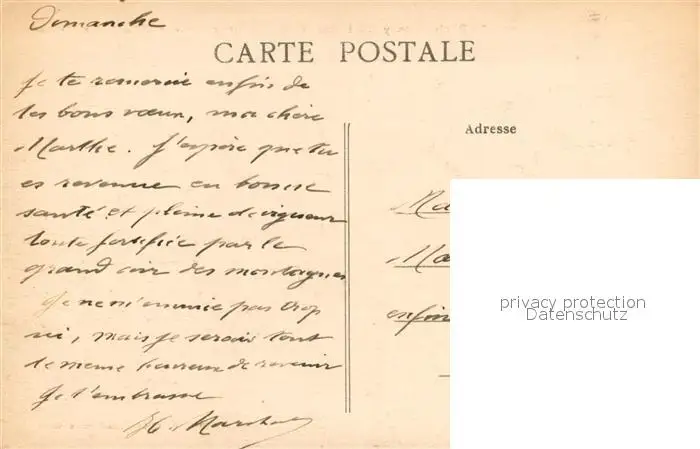 Dimanche
CARTE POSTALE
Je te remercie enfin de
tes bons vœux, ma chère
Marthe. J'espère que tu
es revenue en bonne
santé et pleine de vigueur
toute fortifiée par le
grand air des montagnes
Je ne m'ennuie pas trop
ici, mais je serais tout
de meme heureux de revenir
Je t'embrasse
Adresse
Ma
Ma
privacy protection
Datenschutz